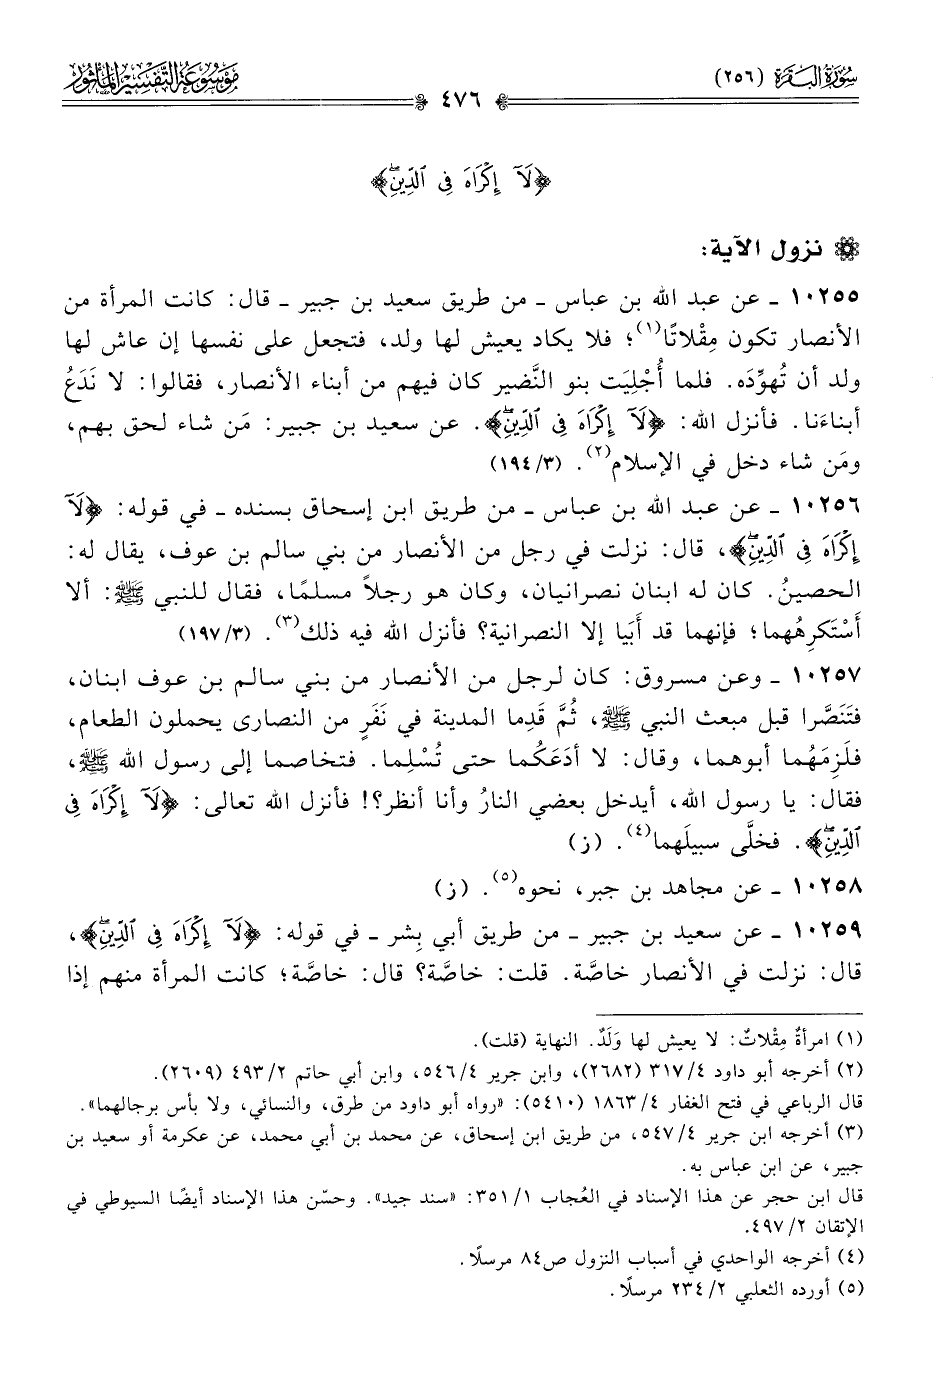 سُورَةُ البَقَرَةِ (٢٥٦)
٤٧٦
مَوْسُوعَةُ التَّفْسِيرِ المَأْثُورِ
﴿لَآ إِكْرَاهَ فِى ٱلدِّينِۖ﴾
نزول الآية:
١٠٢٥٥ ـ عن عبد الله بن عباس ـ من طريق سعيد بن جبير ـ قال: كانت المرأة من
الأنصار تكون مِقْلاتًا(١)؛ فلا يكاد يعيش لها ولد، فتجعل على نفسها إن عاش لها
ولد أن تُهوِّدَه. فلما أُجْلِيَت بنو النَّضير كان فيهم من أبناء الأنصار، فقالوا: لا نَدَعُ
أبناءَنا. فأنزل الله: ﴿لَآ إِكْرَاهَ فِى ٱلدِّينِۖ﴾. عن سعيد بن جبير: مَن شاء لحق بهم،
ومَن شاء دخل في الإسلام(٢). (١٩٤/٣)
١٠٢٥٦ ـ عن عبد الله بن عباس ـ من طريق ابن إسحاق بسنده ـ في قوله: ﴿لَآ
إِكْرَاهَ فِى ٱلدِّينِۖ﴾، قال: نزلت في رجل من الأنصار من بني سالم بن عوف، يقال له:
الحصينُ. كان له ابنان نصرانيان، وكان هو رجلاً مسلمًا، فقال للنبي ﷺ: ألا
أَسْتَكرِهُهما؛ فإنهما قد أَبَيا إلا النصرانية؟ فأنزل الله فيه ذلك(٣). (١٩٧/٣)
١٠٢٥٧ ـ وعن مسروق: كان لرجل من الأنصار من بني سالم بن عوف ابنان،
فتَنَصَّرا قبل مبعث النبي ﷺ، ثُمَّ قَدِما المدينة في نَفَرٍ من النصارى يحملون الطعام،
فلَزِمَهُما أبوهما، وقال: لا أدَعَكُما حتى تُسْلِما. فتخاصما إلى رسول الله ﷺ،
فقال: يا رسول الله، أيدخل بعضي النارُ وأنا أنظر؟! فأنزل الله تعالى: ﴿لَآ إِكْرَاهَ فِى
ٱلدِّينِۖ﴾. فخلَّى سبيلَهما(٤). (ز)
١٠٢٥٨ ـ عن مجاهد بن جبر، نحوه(٥). (ز)
١٠٢٥٩ ـ عن سعيد بن جبير ـ من طريق أبي بِشر ـ في قوله: ﴿لَآ إِكْرَاهَ فِى ٱلدِّينِۖ﴾،
قال: نزلت في الأنصار خاصَّة. قلت: خاصَّة؟ قال: خاصَّة؛ كانت المرأة منهم إذا
(١) امرأةٌ مِقْلاتٌ: لا يعيش لها وَلَدٌ. النهاية (قلت).
(٢) أخرجه أبو داود ٣١٧/٤ (٢٦٨٢)، وابن جرير ٥٤٦/٤، وابن أبي حاتم ٤٩٣/٢ (٢٦٠٩).
قال الرباعي في فتح الغفار ١٨٦٣/٤ (٥٤١٠): «رواه أبو داود من طرق، والنسائي، ولا بأس برجالهما».
(٣) أخرجه ابن جرير ٥٤٧/٤، من طريق ابن إسحاق، عن محمد بن أبي محمد، عن عكرمة أو سعيد بن
جبير، عن ابن عباس به.
قال ابن حجر عن هذا الإسناد في العُجاب ٣٥١/١: «سند جيد». وحسّن هذا الإسناد أيضًا السيوطي في
الإتقان ٤٩٧/٢.
(٤) أخرجه الواحدي في أسباب النزول ص٨٤ مرسلًا.
(٥) أورده الثعلبي ٢٣٤/٢ مرسلًا.